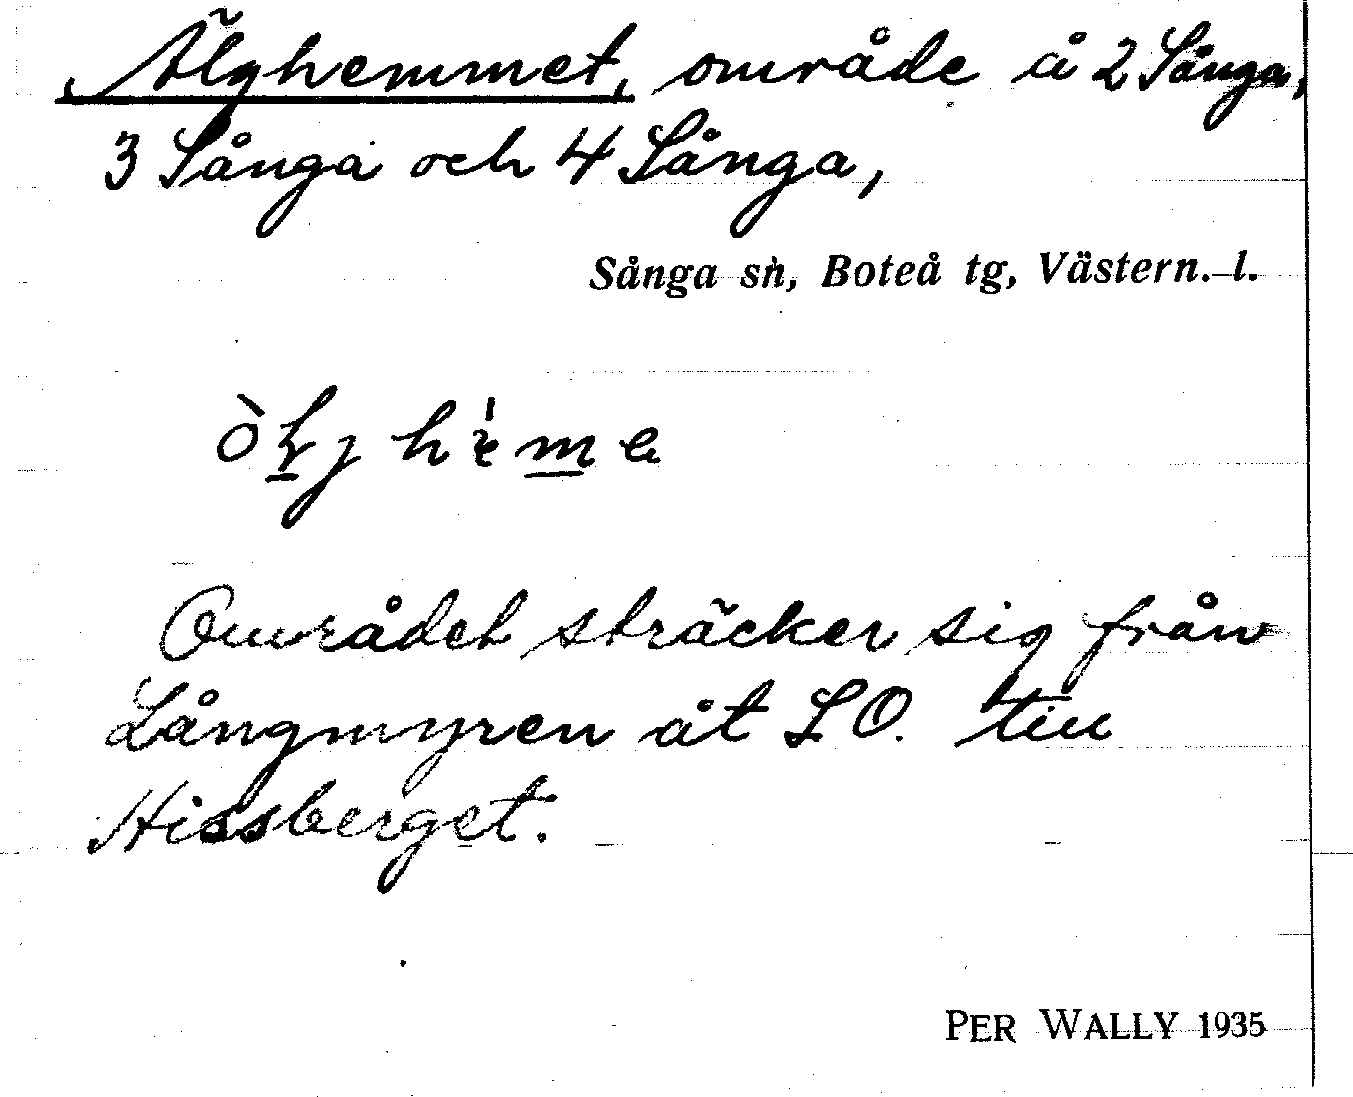 Älghemmet, område å 2 Sånga,
3 Sånga och 4 Sånga,
Sånga sn, Boteå tg, Västern. l.
Området sträcker sig från
Långmyren åt SO. till
Hissberget.
PER WALLY 1935